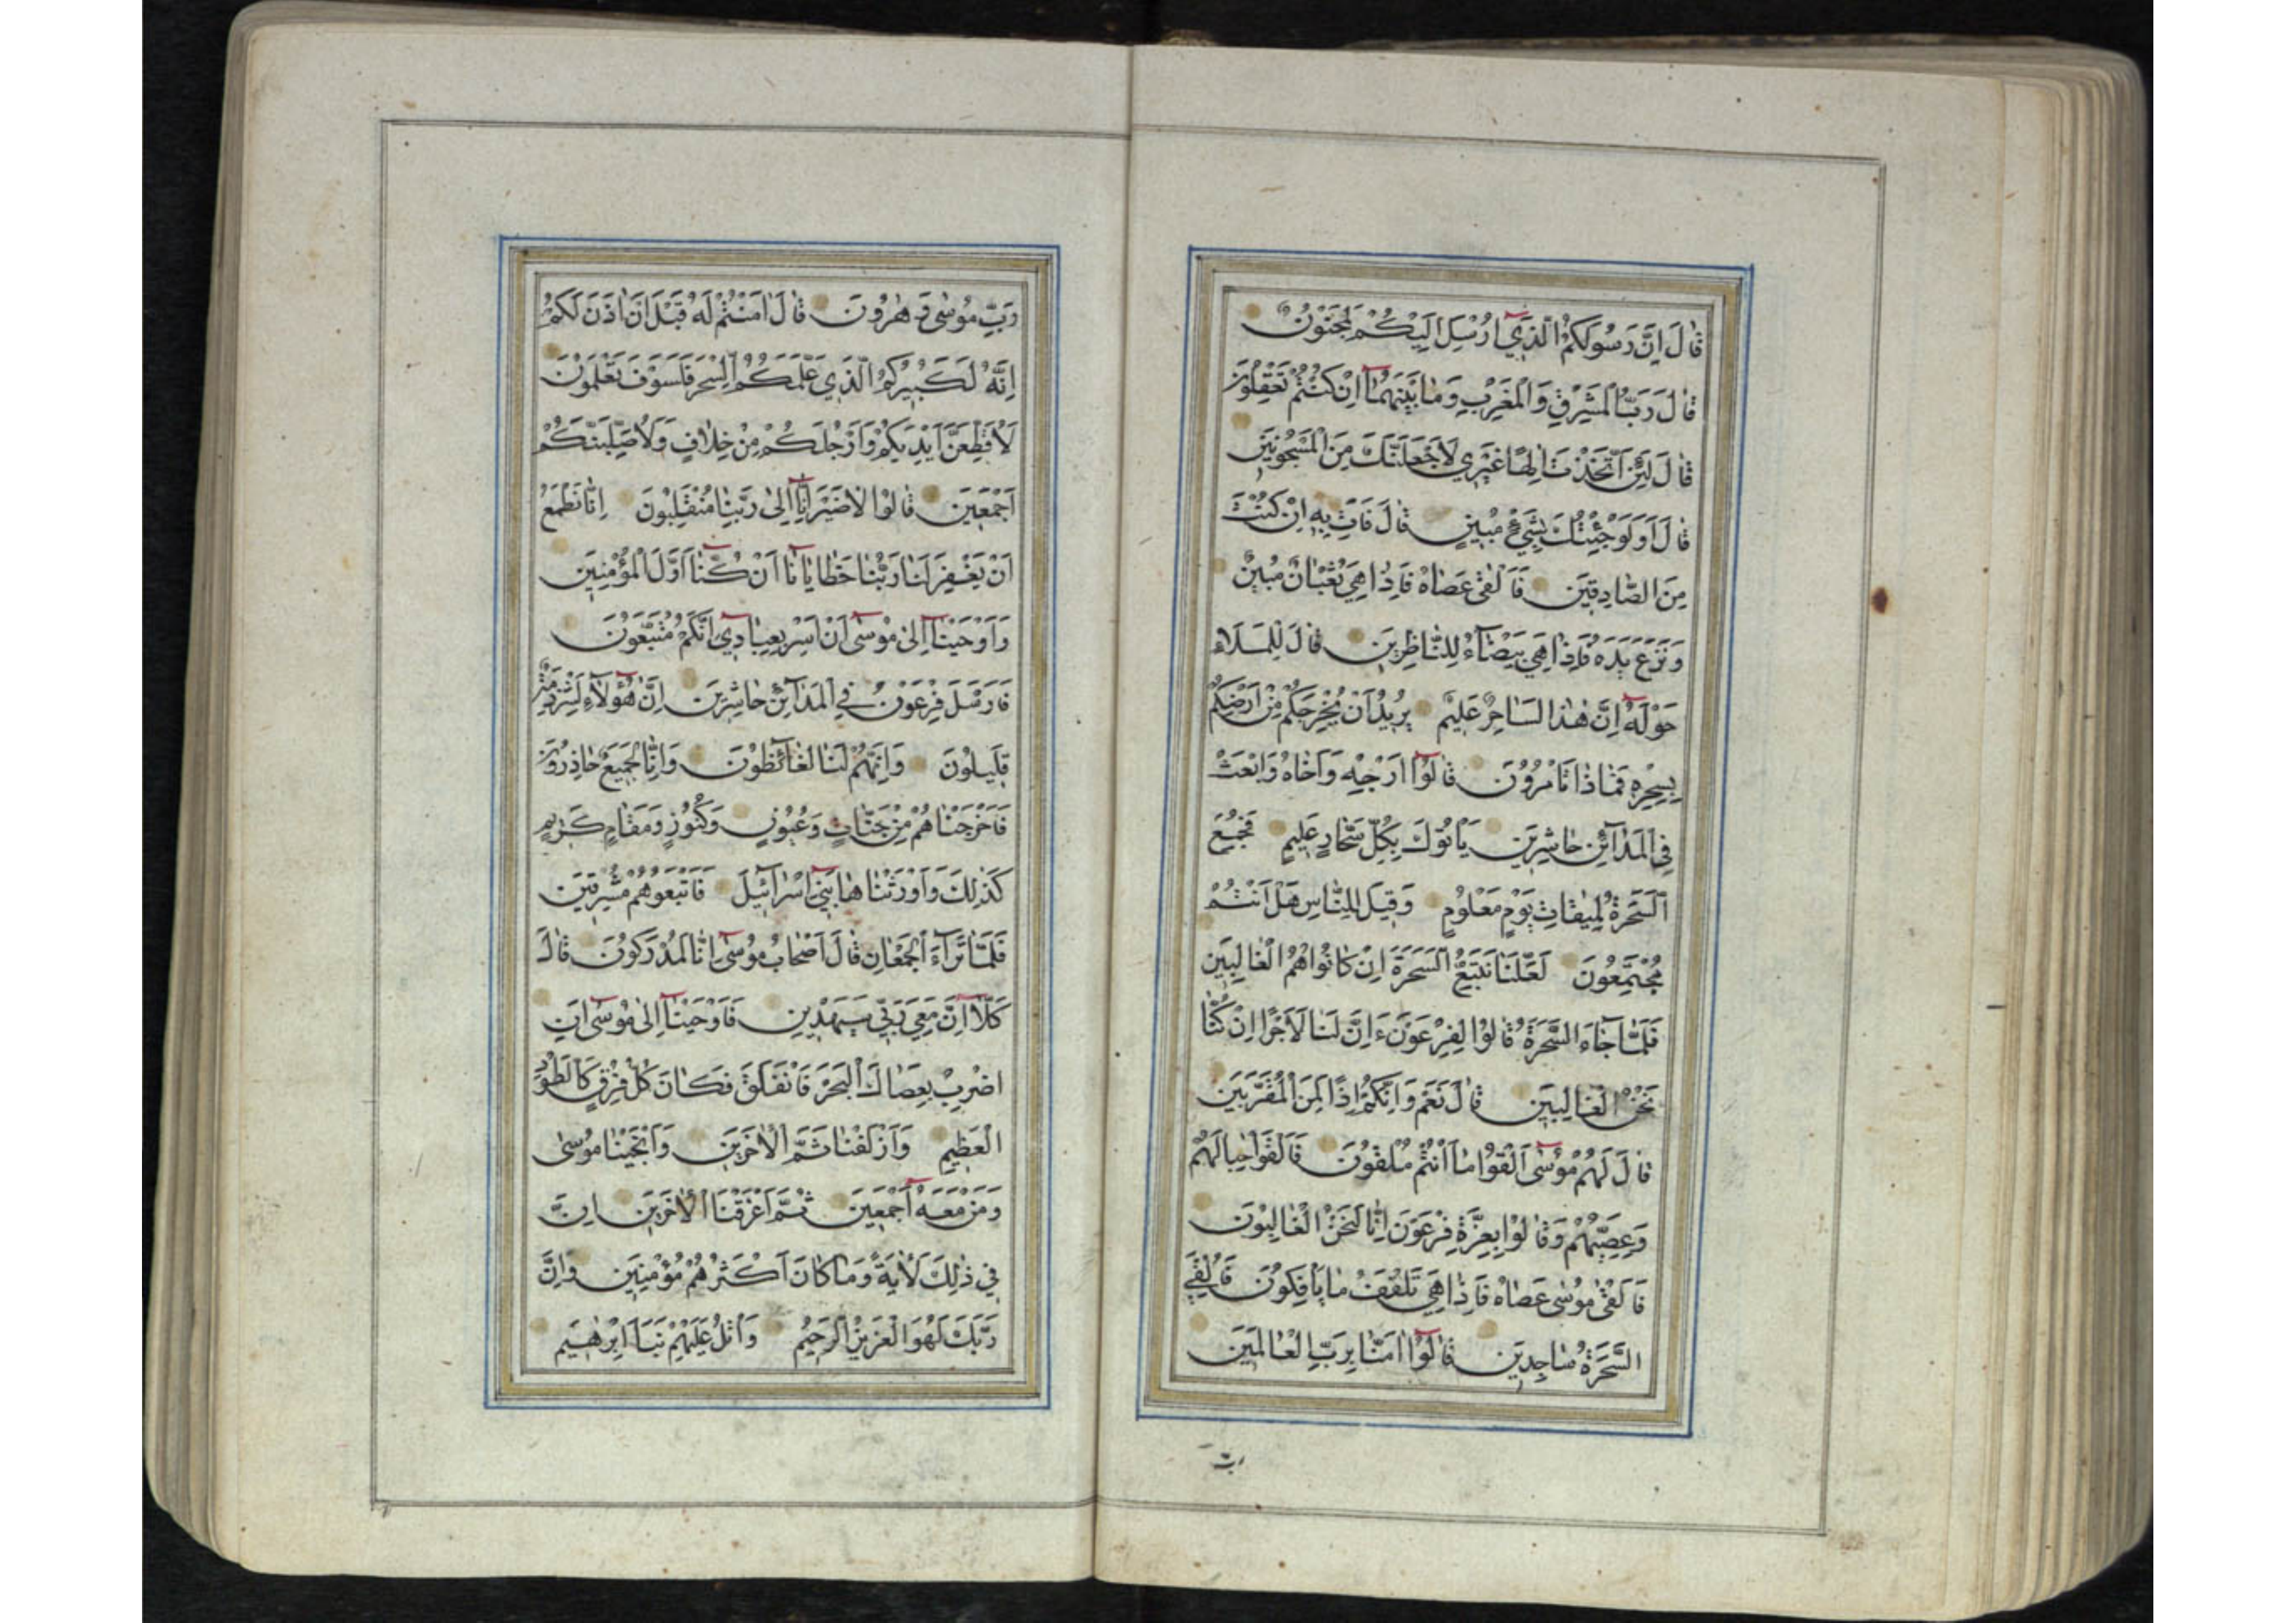 قَالَ اِنَّ رَسُولَكُمُ الَّذِي اُرْسِلَ اِلَيْكُمْ لَمَجْنُونٌ
قَالَ رَبُّ الْمَشْرِقِ وَالْمَغْرِبِ وَمَا بَيْنَهُمَا اِنْ كُنْتُمْ تَعْقِلُونَ
قَالَ لَئِنِ اتَّخَذْتَ اِلٰهًا غَيْرِي لَاَجْعَلَنَّكَ مِنَ الْمَسْجُونِينَ
قَالَ اَوَلَوْ جِئْتُكَ بِشَيْءٍ مُبِينٍ قَالَ فَاْتِ بِهِ اِنْ كُنْتَ
مِنَ الصَّادِقِينَ فَاَلْقٰى عَصَاهُ فَاِذَا هِيَ ثُعْبَانٌ مُبِينٌ
وَنَزَعَ يَدَهُ فَاِذَا هِيَ بَيْضَآءُ لِلنَّاظِرِينَ قَالَ لِلْمَلَاِ
حَوْلَهُ اِنَّ هٰذَا لَسَاحِرٌ عَلِيمٌ يُرِيدُ اَنْ يُخْرِجَكُمْ مِنْ اَرْضِكُمْ
بِسِحْرِهِ فَمَاذَا تَاْمُرُونَ قَالُوا اَرْجِهِ وَاَخَاهُ وَابْعَثْ
فِي الْمَدَآئِنِ حَاشِرِينَ يَاْتُوكَ بِكُلِّ سَحَّارٍ عَلِيمٍ فَجُمِعَ
السَّحَرَةُ لِمِيقَاتِ يَوْمٍ مَعْلُومٍ وَقِيلَ لِلنَّاسِ هَلْ اَنْتُمْ
مُجْتَمِعُونَ لَعَلَّنَا نَتَّبِعُ السَّحَرَةَ اِنْ كَانُوا هُمُ الْغَالِبِينَ
فَلَمَّا جَآءَ السَّحَرَةُ قَالُوا لِفِرْعَوْنَ ءَاِنَّ لَنَا لَاَجْرًا اِنْ كُنَّا
نَحْنُ الْغَالِبِينَ قَالَ نَعَمْ وَاِنَّكُمْ اِذًا لَمِنَ الْمُقَرَّبِينَ
قَالَ لَهُمْ مُوسٰى اَلْقُوا مَا اَنْتُمْ مُلْقُونَ فَاَلْقَوْا حِبَالَهُمْ
وَعِصِيَّهُمْ وَقَالُوا بِعِزَّةِ فِرْعَوْنَ اِنَّا لَنَحْنُ الْغَالِبُونَ
فَاَلْقٰى مُوسٰى عَصَاهُ فَاِذَا هِيَ تَلْقَفُ مَا يَاْفِكُونَ فَاُلْقِيَ
السَّحَرَةُ سَاجِدِينَ قَالُوا اٰمَنَّا بِرَبِّ الْعَالَمِينَ
رَبِّ
رَبِّ مُوسٰى وَهٰرُونَ قَالَ اٰمَنْتُمْ لَهُ قَبْلَ اَنْ اٰذَنَ لَكُمْ
اِنَّهُ لَكَبِيرُكُمُ الَّذِي عَلَّمَكُمُ السِّحْرَ فَلَسَوْفَ تَعْلَمُونَ
لَاُقَطِّعَنَّ اَيْدِيَكُمْ وَاَرْجُلَكُمْ مِنْ خِلَافٍ وَلَاُصَلِّبَنَّكُمْ
اَجْمَعِينَ قَالُوا لَا ضَيْرَ اِنَّا اِلٰى رَبِّنَا مُنْقَلِبُونَ اِنَّا نَطْمَعُ
اَنْ يَغْفِرَ لَنَا رَبُّنَا خَطَايَانَا اَنْ كُنَّا اَوَّلَ الْمُؤْمِنِينَ
وَاَوْحَيْنَا اِلٰى مُوسٰى اَنْ اَسْرِ بِعِبَادِي اِنَّكُمْ مُتَّبَعُونَ
فَاَرْسَلَ فِرْعَوْنُ فِي الْمَدَآئِنِ حَاشِرِينَ اِنَّ هٰؤُلَاءِ لَشِرْذِمَةٌ
قَلِيلُونَ وَاِنَّهُمْ لَنَا لَغَآئِظُونَ وَاِنَّا لَجَمِيعٌ حَاذِرُونَ
فَاَخْرَجْنَاهُمْ مِنْ جَنَّاتٍ وَعُيُونٍ وَكُنُوزٍ وَمَقَامٍ كَرِيمٍ
كَذٰلِكَ وَاَوْرَثْنَاهَا بَنِي اِسْرَآئِيلَ فَاَتْبَعُوهُمْ مُشْرِقِينَ
فَلَمَّا تَرَآءَ الْجَمْعَانِ قَالَ اَصْحَابُ مُوسٰى اِنَّا لَمُدْرَكُونَ قَالَ
كَلَّا اِنَّ مَعِيَ رَبِّي سَيَهْدِينِ فَاَوْحَيْنَا اِلٰى مُوسٰى اَنِ
اضْرِبْ بِعَصَاكَ الْبَحْرَ فَانْفَلَقَ فَكَانَ كُلُّ فِرْقٍ كَالطَّوْدِ
الْعَظِيمِ وَاَزْلَفْنَا ثَمَّ الْاٰخَرِينَ وَاَنْجَيْنَا مُوسٰى
وَمَنْ مَعَهُ اَجْمَعِينَ ثُمَّ اَغْرَقْنَا الْاٰخَرِينَ اِنَّ
فِي ذٰلِكَ لَاٰيَةً وَمَا كَانَ اَكْثَرُهُمْ مُؤْمِنِينَ وَاِنَّ
رَبَّكَ لَهُوَ الْعَزِيزُ الرَّحِيمُ وَاتْلُ عَلَيْهِمْ نَبَاَ اِبْرٰهِيمَ